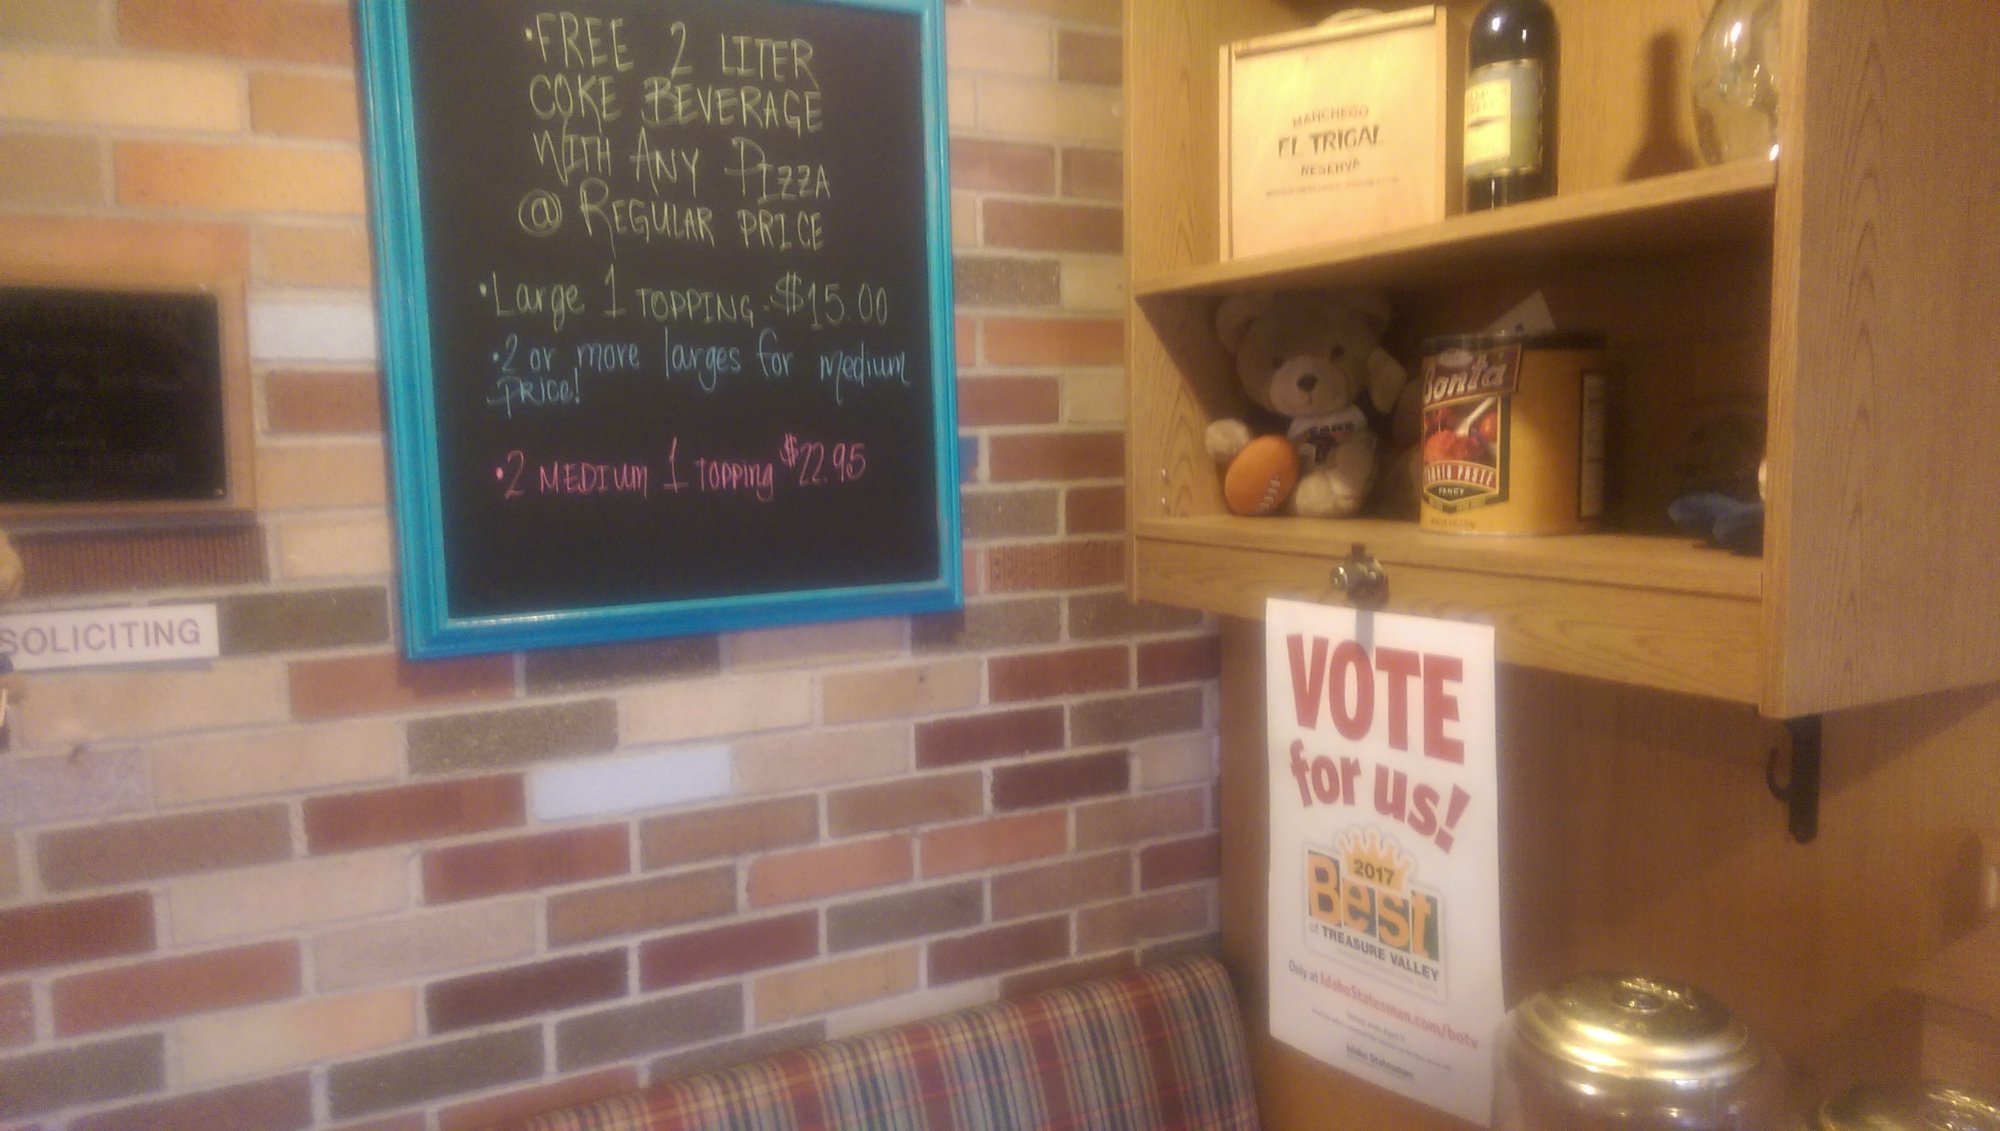 •FREE 2 LITER
COKE BEVERAGE
WITH ANY PIZZA
@ REGULAR PRICE
•Large 1 TOPPING - $15.00
•2 or more larges for medium
PRICE!
•2 MEDIUM 1 TOPPING $22.95
SOLICITING
MANCHEGO
EL TRIGAL
RESERVA
BEARS
Bonta
PASTE
FANCY
VOTE
for us!
2017
Best
of TREASURE VALLEY
Only at IdahoStatesman.com/botv
Idaho Statesman